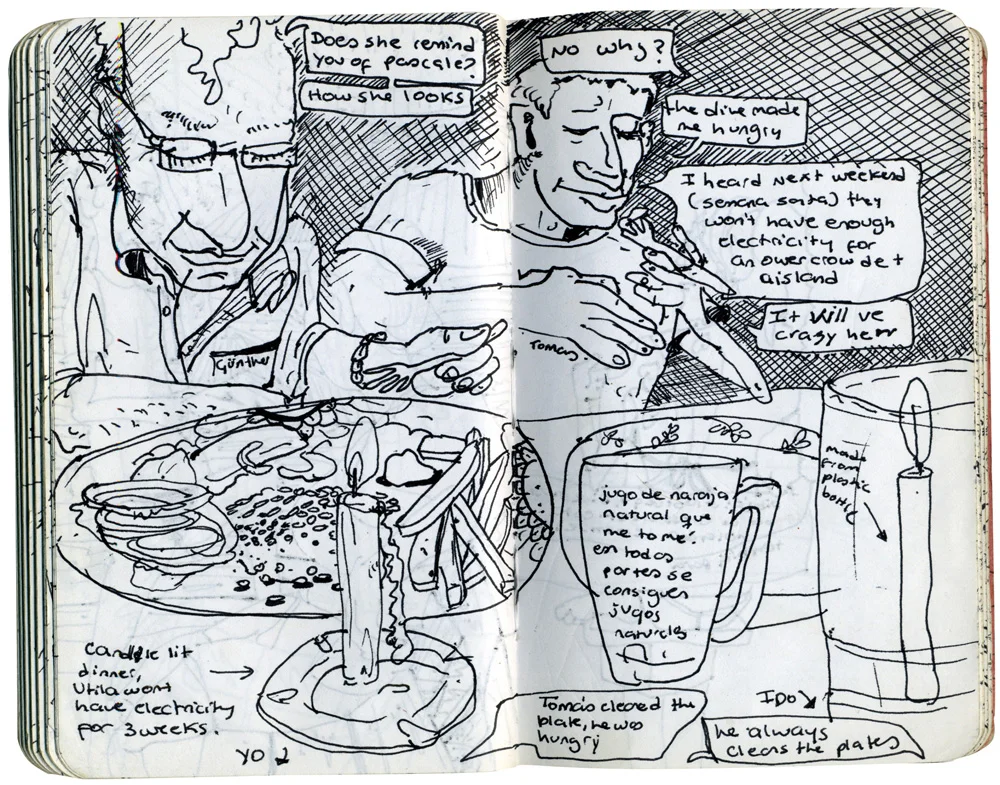 Does she remind
you of pascale?
How she looks
No why?
the dive made
me hungry
I heard next weekend
(semana santa) they
won't have enough
electricity for
an owercrowdet
aisland
It will ve
crazy herr
Günther
Tomas
made
from
plastic
bottle
jugo de naranja
natural que
me tomé.
en todas
partes se
consiguen
jugos
naturales
Candle lit
dinner,
Utila wont
have electricity
for 3 weeks.
YO
Tomás cleared the
plate, he was
hungry
I DO
he always
clears the plates